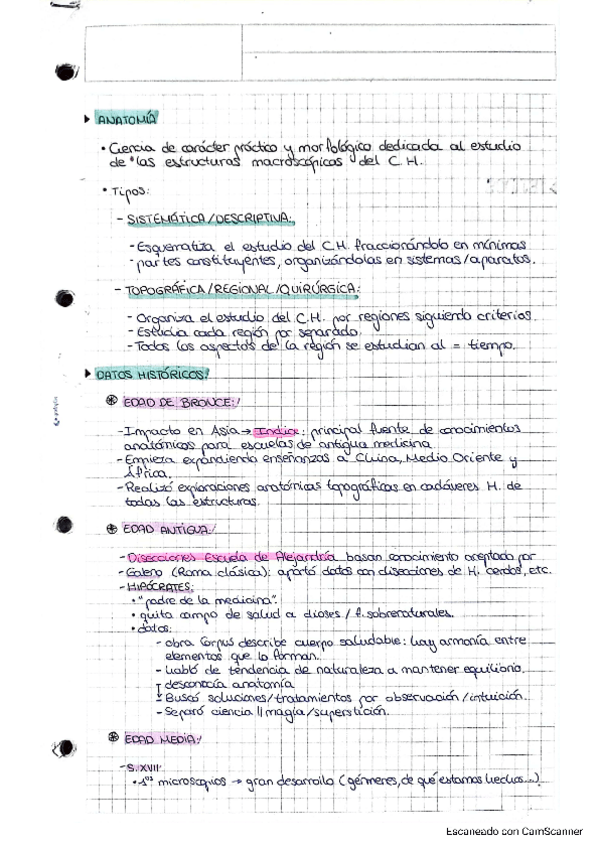 ANATOMÍA
• Ciencia de carácter práctico y morfológico dedicada al estudio
de las estructuras macroscópicas del C.H.
• Tipos:
- SISTEMÁTICA/DESCRIPTIVA:
- Esquematiza el estudio del C.H. fraccionándolo en mínimas
- partes constituyentes, organizándolas en sistemas/aparatos.
- TOPOGRÁFICA/REGIONAL/QUIRÚRGICA:
- Organiza el estudio del C.H. por regiones siguiendo criterios.
- Estudia cada región por separado.
- Todos los aspectos de la región se estudian al = tiempo.
DATOS HISTÓRICOS:
EDAD DE BRONCE:
- Impacto en Asia → Índice: principal fuente de conocimientos
anatómicos para escuelas de antigua medicina
- Empieza expandiendo enseñanzas a China, Medio Oriente y
África.
- Realizó exploraciones anatómicas topográficas en cadáveres H. de
todas las estructuras.
EDAD ANTIGUA:
- Disecciones Escuela de Alejandría basan conocimiento aceptado por
- Galeno (Roma clásica): aportó datos con disecciones de H. cerdos, etc.
- HIPÓCRATES:
• "padre de la medicina".
• quita campo de salud a dioses / f. sobrenaturales.
• datos:
- obra Corpus describe cuerpo saludable: hay armonía entre
elementos que lo forman.
- habló de tendencia de naturaleza a mantener equilibrio.
desconocía anatomía
Buscó soluciones/tratamientos por observación/intuición.
- Separó ciencia || magia/superstición.
EDAD MEDIA:
- S. XVII:
• 1os microscopios → gran desarrollo (gérmenes, de qué estamos hechos...)
Escaneado con CamScanner